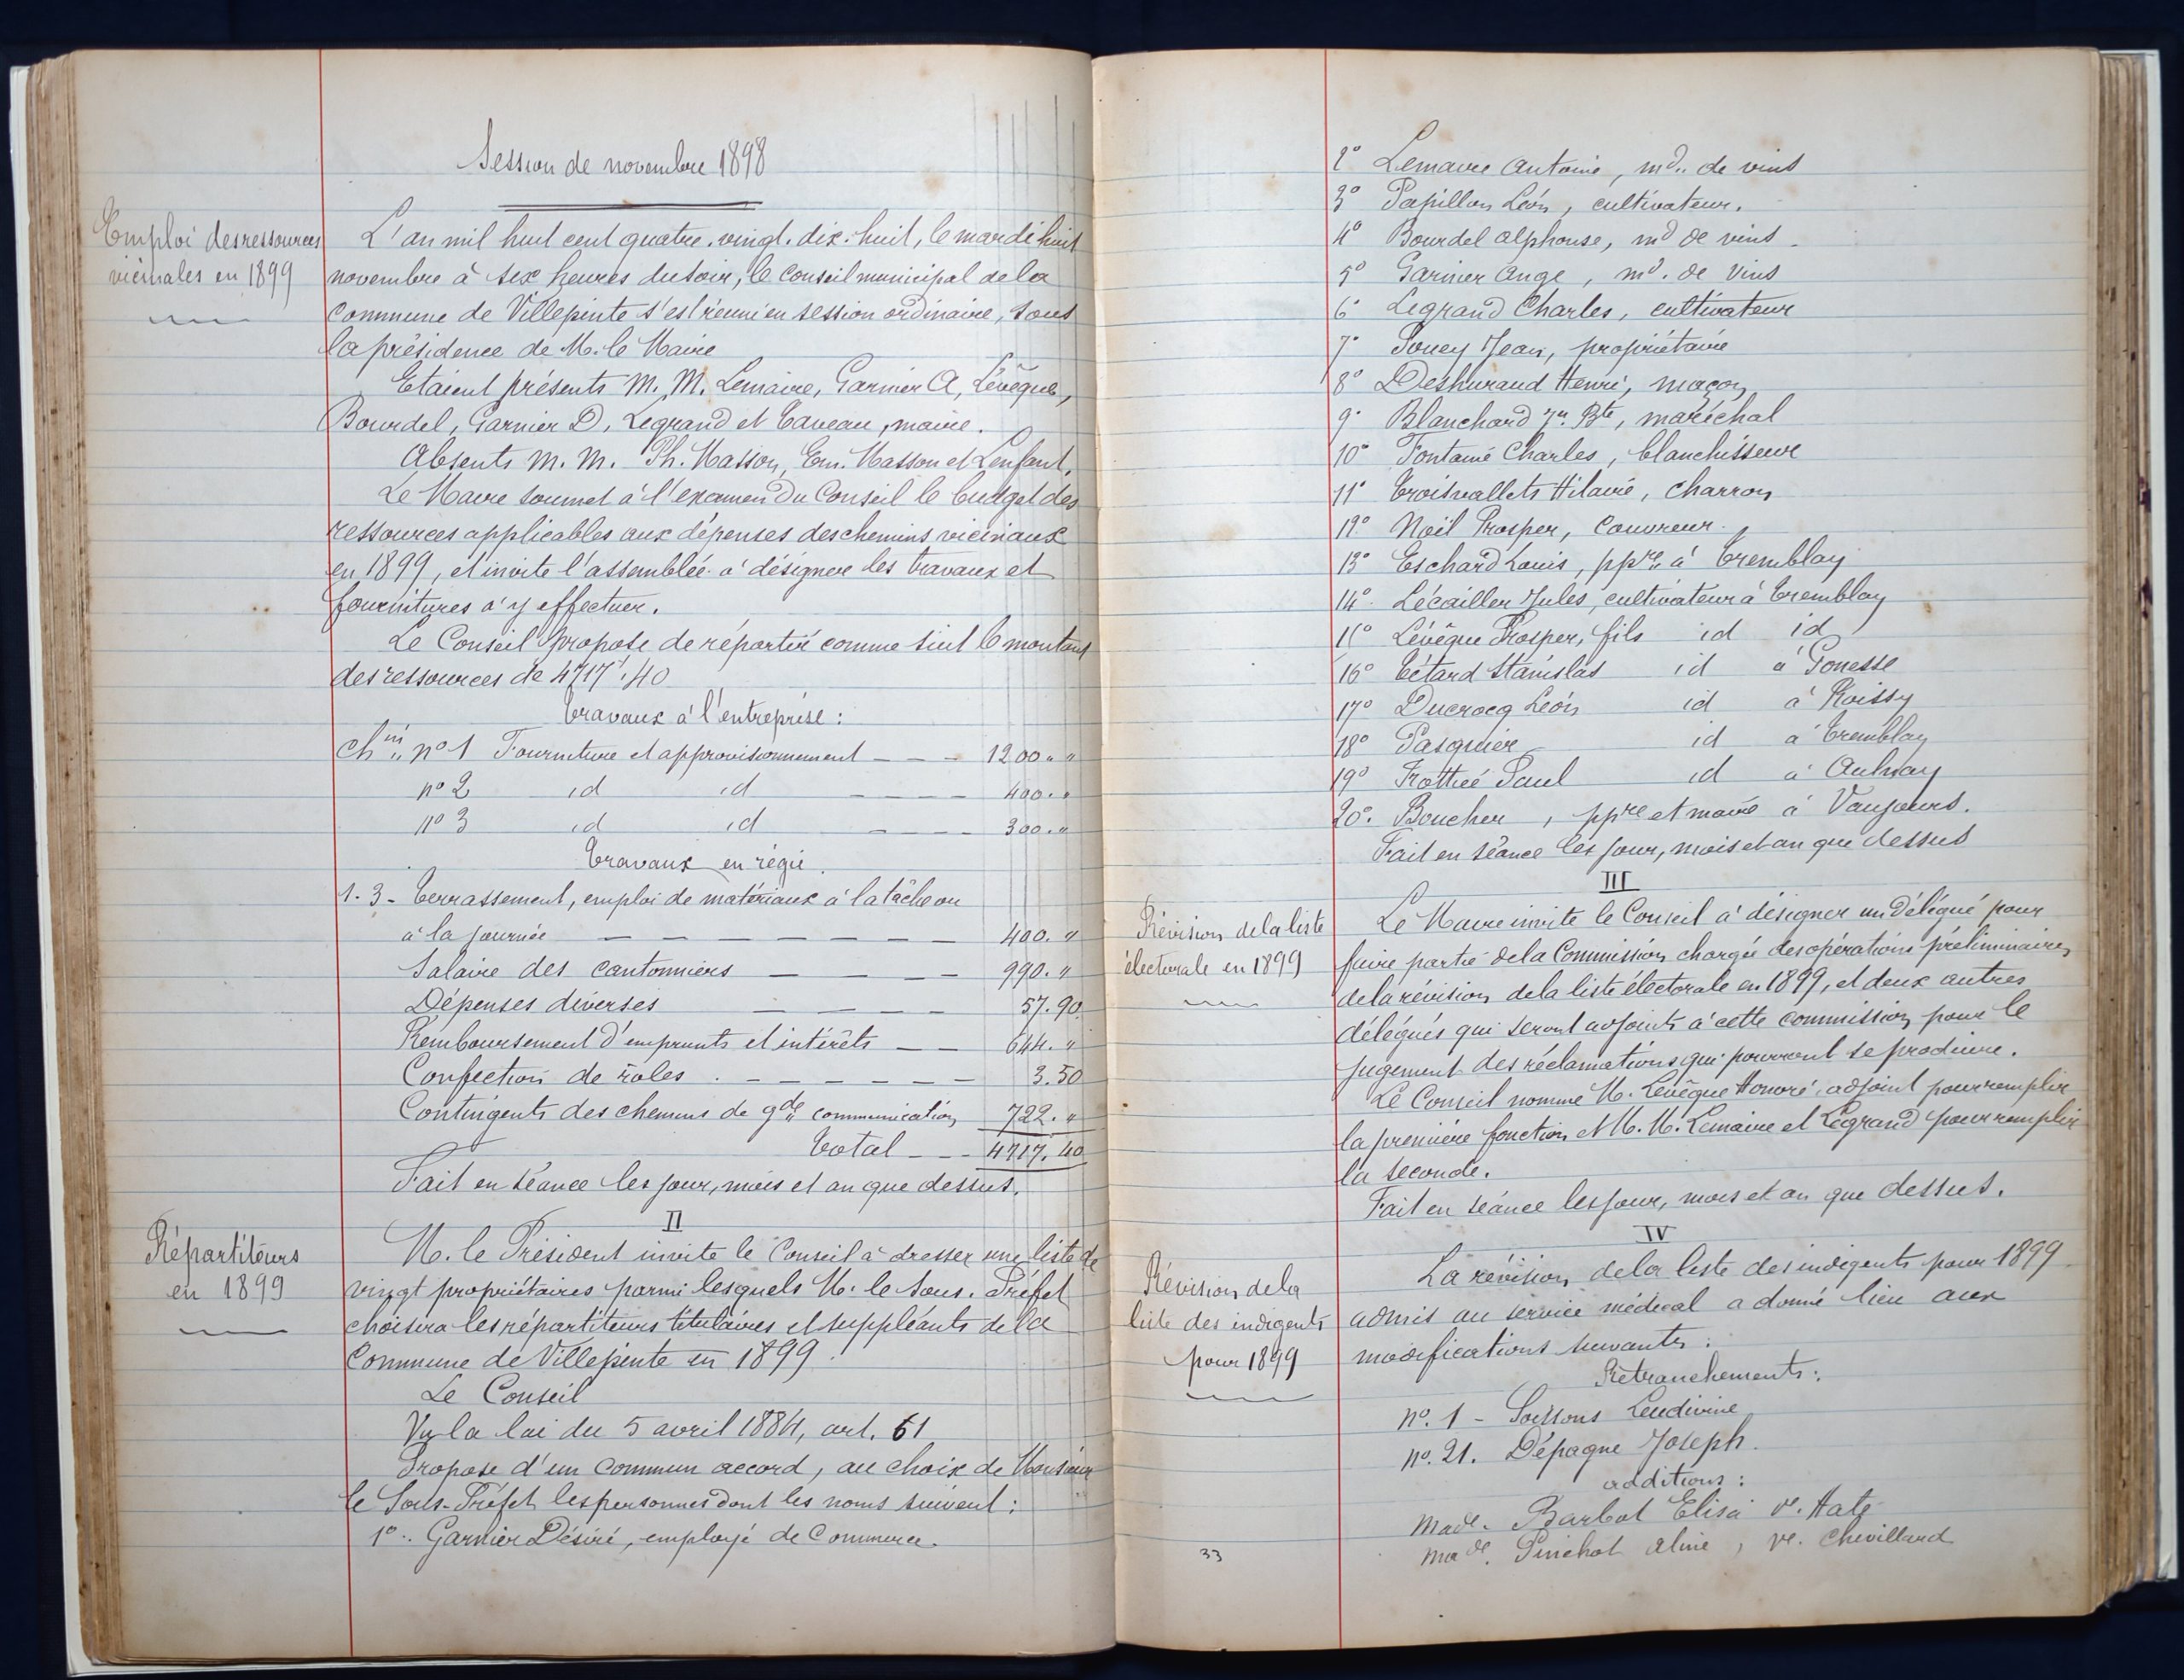 Session de novembre 1898
Emploi des ressources
vicinales en 1899
L'an mil huit cent quatre-vingt-dix-huit, le mardi huit
novembre à six heures du soir, le Conseil municipal de la
Commune de Villepinte s'est réuni en session ordinaire, sous
la présidence de M. le Maire
Etaient présents M. M. Lemaire, Garnier A, Lévêque,
Bourdel, Garnier D, Legrand et Taveau, maire.
Absents M. M. Ph. Masson, Em. Masson et Lenfant.
Le Maire soumet à l'examen du Conseil le budget des
ressources applicables aux dépenses des chemins vicinaux
en 1899, et invite l'assemblée à désigner les travaux et
fournitures à y effectuer.
Le Conseil propose de répartir comme suit le montant
des ressources de 4717f,40
Travaux à l'entreprise :
Chin n° 1 Fourniture et approvisionnement - - - 1200 . "
n° 2 id id - - - - 400 . "
n° 3 id id - - - - 300 . "
Travaux en régie.
1. 3 - Terrassement, emploi de matériaux à la tâche ou
à la journée - - - - - - - 400. "
Salaire des cantonniers - - - - 990. "
Dépenses diverses - - - - 57.90
Remboursement d'emprunts et intérêts - - 644. "
Confection de rôles . - - - - - - 3.50
Contingents des chemins de gde communication 722. "
Total - - - 4717.40
Fait en séance les jour, mois et an que dessus.
II
Répartiteurs
en 1899
M. le Président invite le Conseil à dresser une liste de
vingt propriétaires parmi lesquels M. le Sous-Préfet
choisira les répartiteurs titulaires et suppléants de la
Commune de Villepinte en 1899.
Le Conseil
Vu la loi du 5 avril 1884, art. 61
Propose d'un commun accord, au choix de Monsieur
le Sous-Préfet les personnes dont les noms suivent :
1° Garnier Désiré, employé de Commerce.
2° Lemaire Antoine, md. de vins
3° Papillon Léon, cultivateur.
4° Bourdel Alphonse, md de vins.
5° Garnier Ange, md. de vins
6° Legrand Charles, cultivateur
7° Jean, propriétaire
8° Deshuraud Henri, maçon
9° Blanchard Jn Bte, maréchal
10° Fontaine Charles, blanchisseur
11° Troisvallets Hilaire, charron
12° Noël Prosper, Couvreur.
13° Eschard Louis, ppre à Tremblay
14° Lécailler Jules, cultivateur à Tremblay
15° Lévêque Prosper, fils id id
16° Tétard Stanislas id à Gonesse
17° Ducrocq Léon id à Roissy
18° Pasquier id à Tremblay
19° Paul id à Aulnay
20° Boucher, ppre et maire à Vaujours.
Fait en séance les jour, mois et an que dessus
III
Révision de la liste
électorale en 1899
Le Maire invite le Conseil à désigner un délégué pour
faire partie de la Commission chargée des opérations préliminaires
de la révision de la liste électorale en 1899, et deux autres
délégués qui seront adjoints à cette commission pour le
jugement des réclamations qui pourront se produire.
Le Conseil nomme M. Lévêque Honoré, adjoint pour remplir
la première fonction et M. M. Lemaire et Legrand pour remplir
la seconde.
Fait en séance les jour, mois et an que dessus.
IV
Révision de la
liste des indigents
pour 1899
La révision de la liste des indigents pour 1899
admis au service médical a donné lieu aux
modifications suivantes :
Retranchements :
n°. 1 - Soissons Leudivine
n°. 21. Dépagne Joseph.
additions :
Made. Barbot Elisa ve. Hate
Made. Pinchot Aline, ve. Chevillard
33